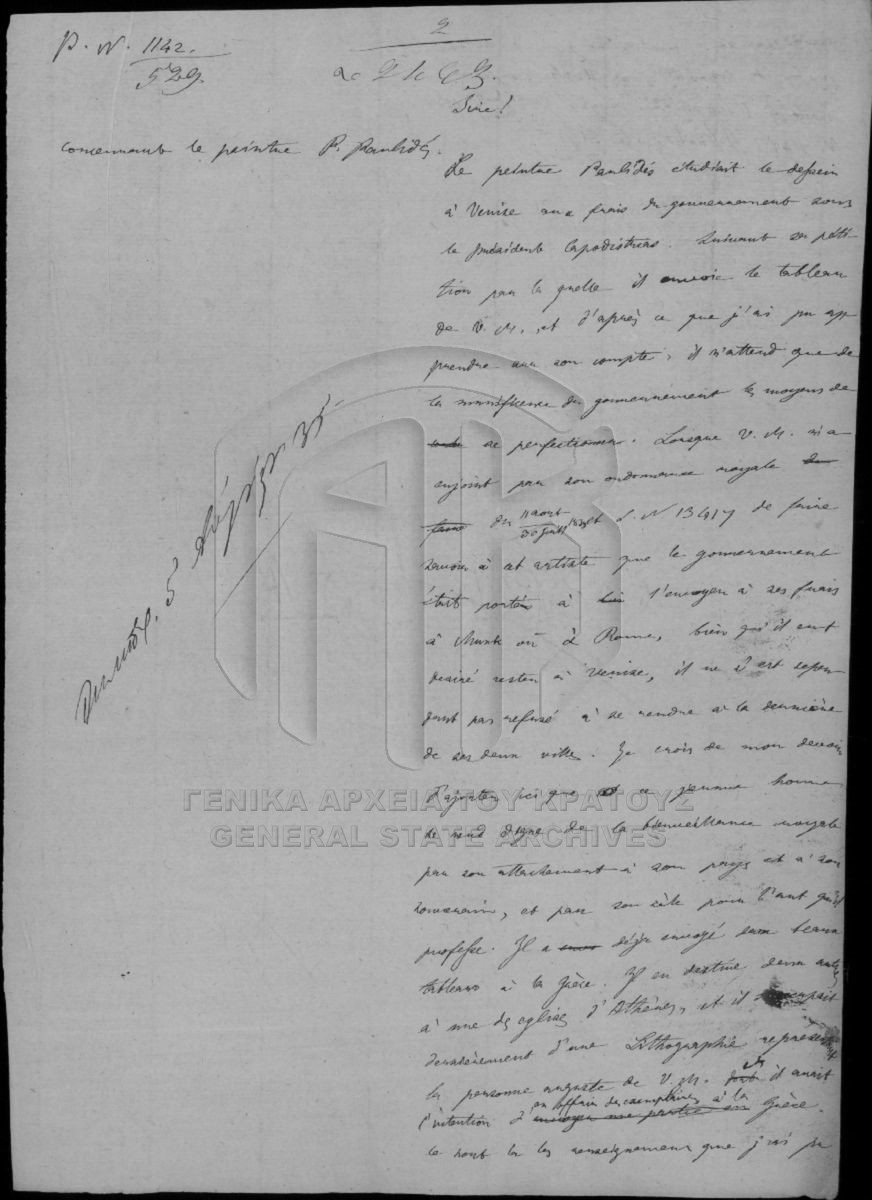 2
P. N. 1142.
529
Sire!
concernant le peintre P. Paulidés.
Le peintre Paulidés étudiait le dessein
à Venise aux frais du gouvernement sous
le Président Capodistrias. Suivant sa péti
tion par la quelle il envoie le tableau
de V. M., et d'après ce que j'ai pu ap
prendre sur son compte, il n'attend que de
la munificence du gouvernement les moyens de
se perfectionner. Lorsque V. M. m'a
enjoint par son ordonnance royale
du 11 août L. N 13417 de faire
savoir à cet artiste que le gouvernement
était porté à l'envoyer à ses frais
à Munik où à Rome, bien qu'il eut
desiré rester à Venise, il ne s'est cepen
dant pas refusé à se rendre à la dernière
de ses deux villes. Je crois de mon devoir
d'ajouter ici que ce jeunne homme
se rend digne de la bienveillance royale
par son attachement à son pays et à son
souverain, et par son zèle pour l'art qu'il
professe. Il a déjà envoyé deux beaux
tableaux à la Grèce. Il en destine deux autres
à une des eglises d'Athènes, et il s'occupait
dernièrement d'une Lithographie représentant
la personne auguste de V. M. il avait
l'intention d'en offrir des exemplaires à la Grèce.
Ce sont là les renseignemens que j'ai pu
ΓΕΝΙΚΑ ΑΡΧΕΙΑ ΤΟΥ ΚΡΑΤΟΥΣ
GENERAL STATE ARCHIVES